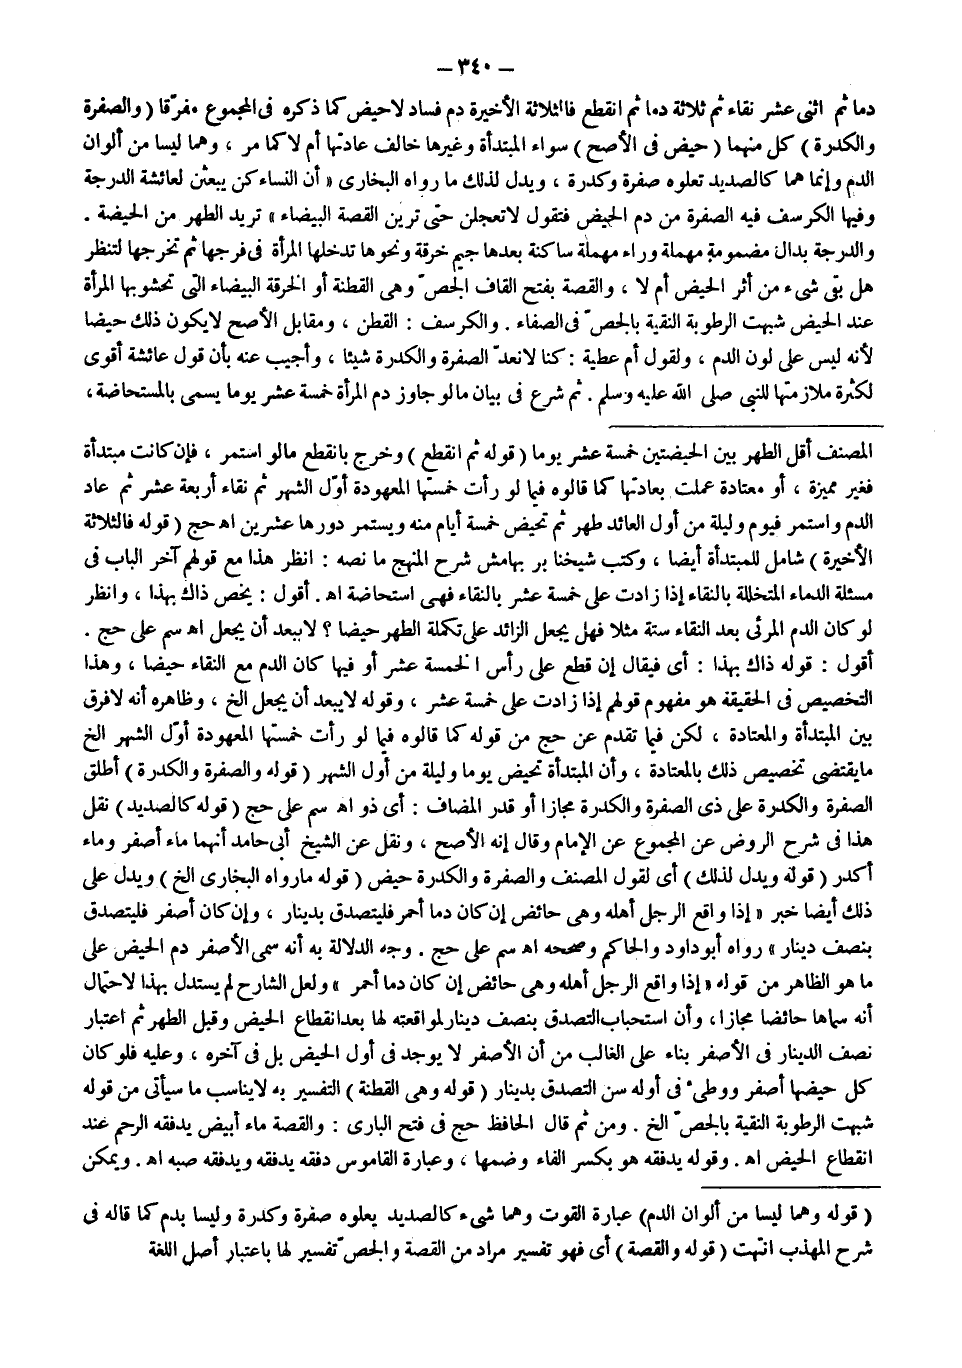 – ٣٤٠ –
دما ثم اثنى عشر نقاء ثم ثلاثة دما ثم انقطع فالثلاثة الأخيرة دم فساد لاحيض كما ذكره فى المجموع مفرّقا ( والصفرة
والكدرة ) كل منهما ( حيض فى الأصح ) سواء المبتدأة وغيرها خالف عادتها أم لا كما مر ، وهما ليسا من ألوان
الدم وإنما هما كالصديد تعلوه صفرة وكدرة ، ويدل لذلك ما رواه البخارى « أن النساء كن يبعثن لعائشة الدرجة
وفيها الكرسف فيه الصفرة من دم الحيض فتقول لاتعجلن حتى ترين القصة البيضاء » تريد الطهر من الحيضة .
والدرجة بدال مضمومة مهملة وراء مهملة ساكنة بعدها جيم خرقة ونحوها تدخلها المرأة فى فرجها ثم تخرجها لتنظر
هل بقى شىء من أثر الحيض أم لا ، والقصة بفتح القاف الجصّ وهى القطنة أو الخرقة البيضاء التى تحشوبها المرأة
عند الحيض شبهت الرطوبة النقية بالجصّ فى الصفاء . والكرسف : القطن ، ومقابل الأصح لايكون ذلك حيضا
لأنه ليس على لون الدم ، ولقول أم عطية : كنا لانعدّ الصفرة والكدرة شيئا ، وأجيب عنه بأن قول عائشة أقوى
لكثرة ملازمتها للنبى صلى الله عليه وسلم . ثم شرع فى بيان مالو جاوز دم المرأة خمسة عشر يوما يسمى بالمستحاضة ،
المصنف أقل الطهر بين الحيضتين خمسة عشر يوما ( قوله ثم انقطع ) وخرج بانقطع مالو استمر ، فإن كانت مبتدأة
فغير مميزة ، أو معتادة عملت بعادتها كما قالوه فيما لو رأت خمستها المعهودة أوّل الشهر ثم نقاء أربعة عشر ثم عاد
الدم واستمر فيوم وليلة من أول العائد طهر ثم تحيض خمسة أيام منه ويستمر دورها عشرين اه حج ( قوله فالثلاثة
الأخيرة ) شامل للمبتدأة أيضا ، وكتب شيخنا بر بهامش شرح المنهج ما نصه : انظر هذا مع قولهم آخر الباب فى
مسئلة الدماء المتخللة بالنقاء إذا زادت على خمسة عشر بالنقاء فهى استحاضة اه . أقول : يخص ذاك بهذا ، وانظر
لو كان الدم المرئى بعد النقاء ستة مثلا فهل يجعل الزائد على تكملة الطهر حيضا ؟ لايبعد أن يجعل اه سم على حج .
أقول : قوله ذاك بهذا : أى فيقال إن قطع على رأس الخمسة عشر أو فيها كان الدم مع النقاء حيضا ، وهذا
التخصيص فى الحقيقة هو مفهوم قولهم إذا زادت على خمسة عشر ، وقوله لايبعد أن يجعل الخ ، وظاهره أنه لافرق
بين المبتدأة والمعتادة ، لكن فيما تقدم عن حج من قوله كما قالوه فيما لو رأت خمستها المعهودة أوّل الشهر الخ
مايقتضى تخصيص ذلك بالمعتادة ، وأن المبتدأة تحيض يوما وليلة من أول الشهر ( قوله والصفرة والكدرة ) أطلق
الصفرة والكدرة على ذى الصفرة والكدرة مجازا أو قدر المضاف : أى ذو اه سم على حج ( قوله كالصديد ) نقل
هذا فى شرح الروض عن المجموع عن الإمام وقال إنه الأصح ، ونقل عن الشيخ أبى حامد أنهما ماء أصفر وماء
أكدر ( قوله ويدل لذلك ) أى لقول المصنف والصفرة والكدرة حيض ( قوله مارواه البخارى الخ ) ويدل على
ذلك أيضا خبر « إذا واقع الرجل أهله وهى حائض إن كان دما أحمر فليتصدق بدينار ، وإن كان أصفر فليتصدق
بنصف دينار » رواه أبو داود والحاكم وصححه اه سم على حج . وجه الدلالة به أنه سمى الأصفر دم الحيض على
ما هو الظاهر من قوله « إذا واقع الرجل أهله وهى حائض إن كان دما أحمر » ولعل الشارح لم يستدل بهذا لاحتمال
أنه سماها حائضا مجازا ، وأن استحباب التصدق بنصف دينار لمواقعته لها بعد انقطاع الحيض وقبل الطهر ثم اعتبار
نصف الدينار فى الأصفر بناء على الغالب من أن الأصفر لا يوجد فى أول الحيض بل فى آخره ، وعليه فلو كان
كل حيضها أصفر ووطئ فى أوله سن التصدق بدينار ( قوله وهى القطنة ) التفسير به لايناسب ما سيأتى من قوله
شبهت الرطوبة النقية بالجصّ الخ . ومن ثم قال الحافظ حج فى فتح البارى : والقصة ماء أبيض يدفقه الرحم عند
انقطاع الحيض اه . وقوله يدفقه هو بكسر الفاء وضمها ، وعبارة القاموس دفقه يدفقه ويدفقه صبه اه . ويمكن
( قوله وهما ليسا من ألوان الدم) عبارة القوت وهما شىء كالصديد يعلوه صفرة وكدرة وليسا بدم كما قاله فى
شرح المهذب انتهت ( قوله والقصة ) أى فهو تفسير مراد من القصة والجصّ تفسير لها باعتبار أصل اللغة